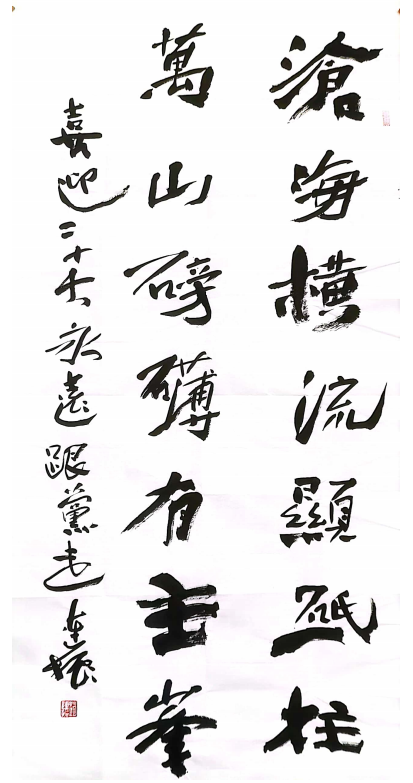 滄海橫流顯砥柱
萬山磅礴有主峯
喜迎二十大永遠跟黨走